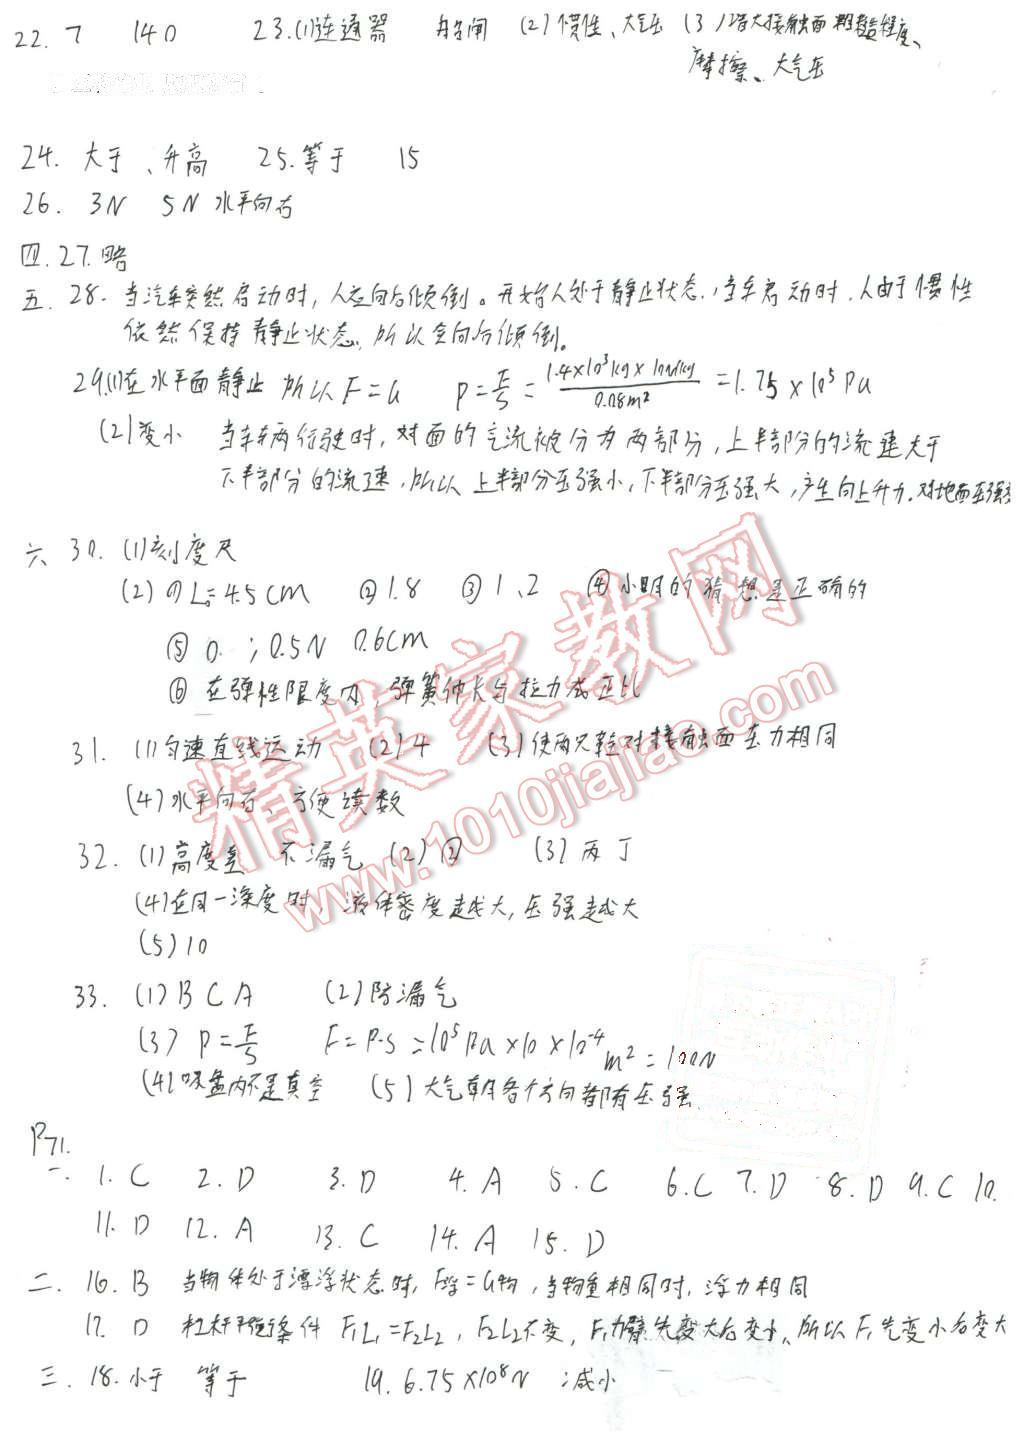 22. 7 140 23.(1)连通器 船闸 (2)惯性、大气压 (3)增大接触面粗糙程度、
摩擦、大气压
24. 大于、升高 25.等于 15
26. 3N 5N 水平向右
四.27.略
五.28.当汽车突然启动时,人会向后倾倒。开始人处于静止状态,当车启动时,人由于惯性
依然保持静止状态,所以会向后倾倒。
29.(1)在水平面静止 所以F=G P=F/S=1.4×10³kg×10N/kg/0.08m²=1.75×10⁵Pa
(2)变小 当车辆行驶时,对面的气流被分为两部分,上半部分的流速大于
下半部分的流速,所以上半部分压强小,下半部分压强大,产生向上升力.对地面压强
六 30. (1)刻度尺
(2) ①L₀=4.5cm ②1.8 ③1、2 ④小明的猜想是正确的
⑤ 0. ; 0.5N 0.6cm
⑥ 在弹性限度内,弹簧伸长与拉力成正比
31. (1)匀速直线运动 (2)4 (3)使两只鞋对接触面压力相同
(4)水平向右、方便读数
32. (1)高度差 不漏气 (2)② (3)丙丁
(4)在同一深度时 液体密度越大,压强越大
(5)10
33. (1)BCA (2)防漏气
(3) P=F/S F=P·S=10⁵Pa×10×10⁻⁴m²=100N
(4)吸盘内不是真空 (5)大气朝各个方向都有压强
P71.
一. 1.C 2.D 3.D 4.A 5.C 6.C 7.D 8.D 9.C 10.
11.D 12.A 13.C 14.A 15.D
二.16.B 当物体处于漂浮状态时,F浮=G物,当物重相同时,浮力相同
17. D 杠杆平衡条件 F₁L₁=F₂L₂,F₂L₂不变,F₁力臂先变大后变小、所以F₁先变小后变大
三.18.小于 等于 19.6.75×10⁸N ;减小
精英家教网
www.1010jiajiao.com